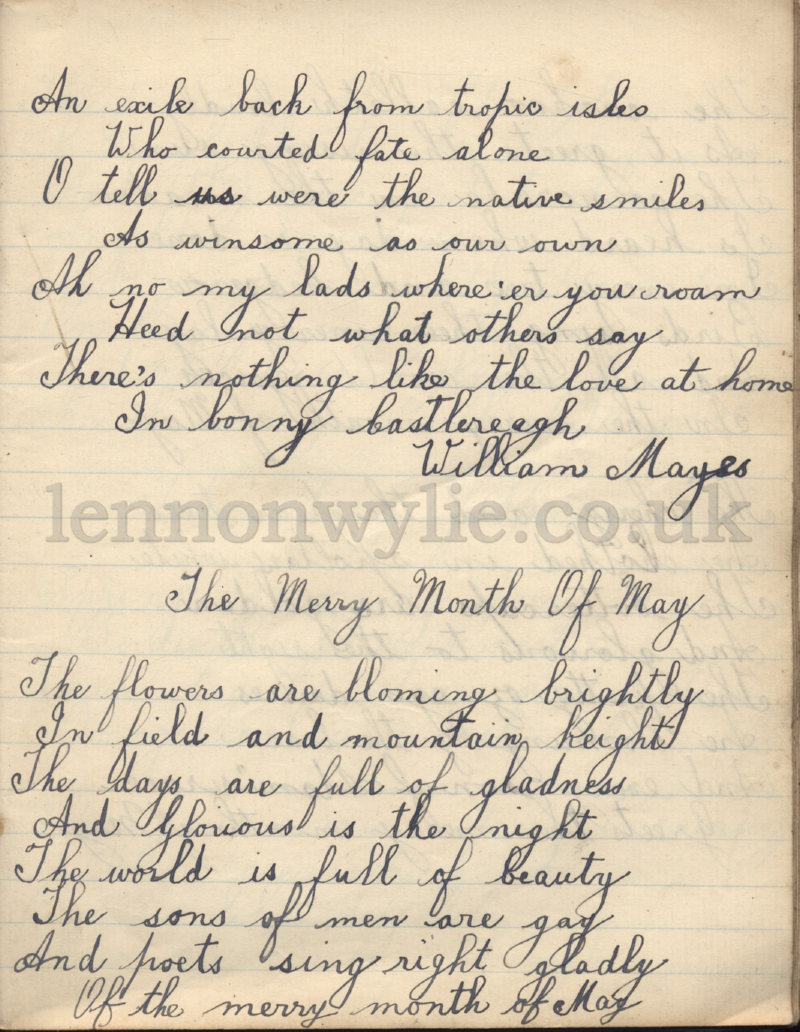 An exile back from tropic isles
Who courted fate alone
O tell us were the native smiles
As winsome as our own
Ah no my lads where'er you roam
Heed not what others say
There's nothing like the love at home
In bonny Castlereagh
William Mayes
lennonwylie.co.uk
The Merry Month Of May
The flowers are bloming brightly
In field and mountain height
The days are full of gladness
And Glorious is the night
The world is full of beauty
The sons of men are gay
And poets sing right gladly
Of the merry month of May